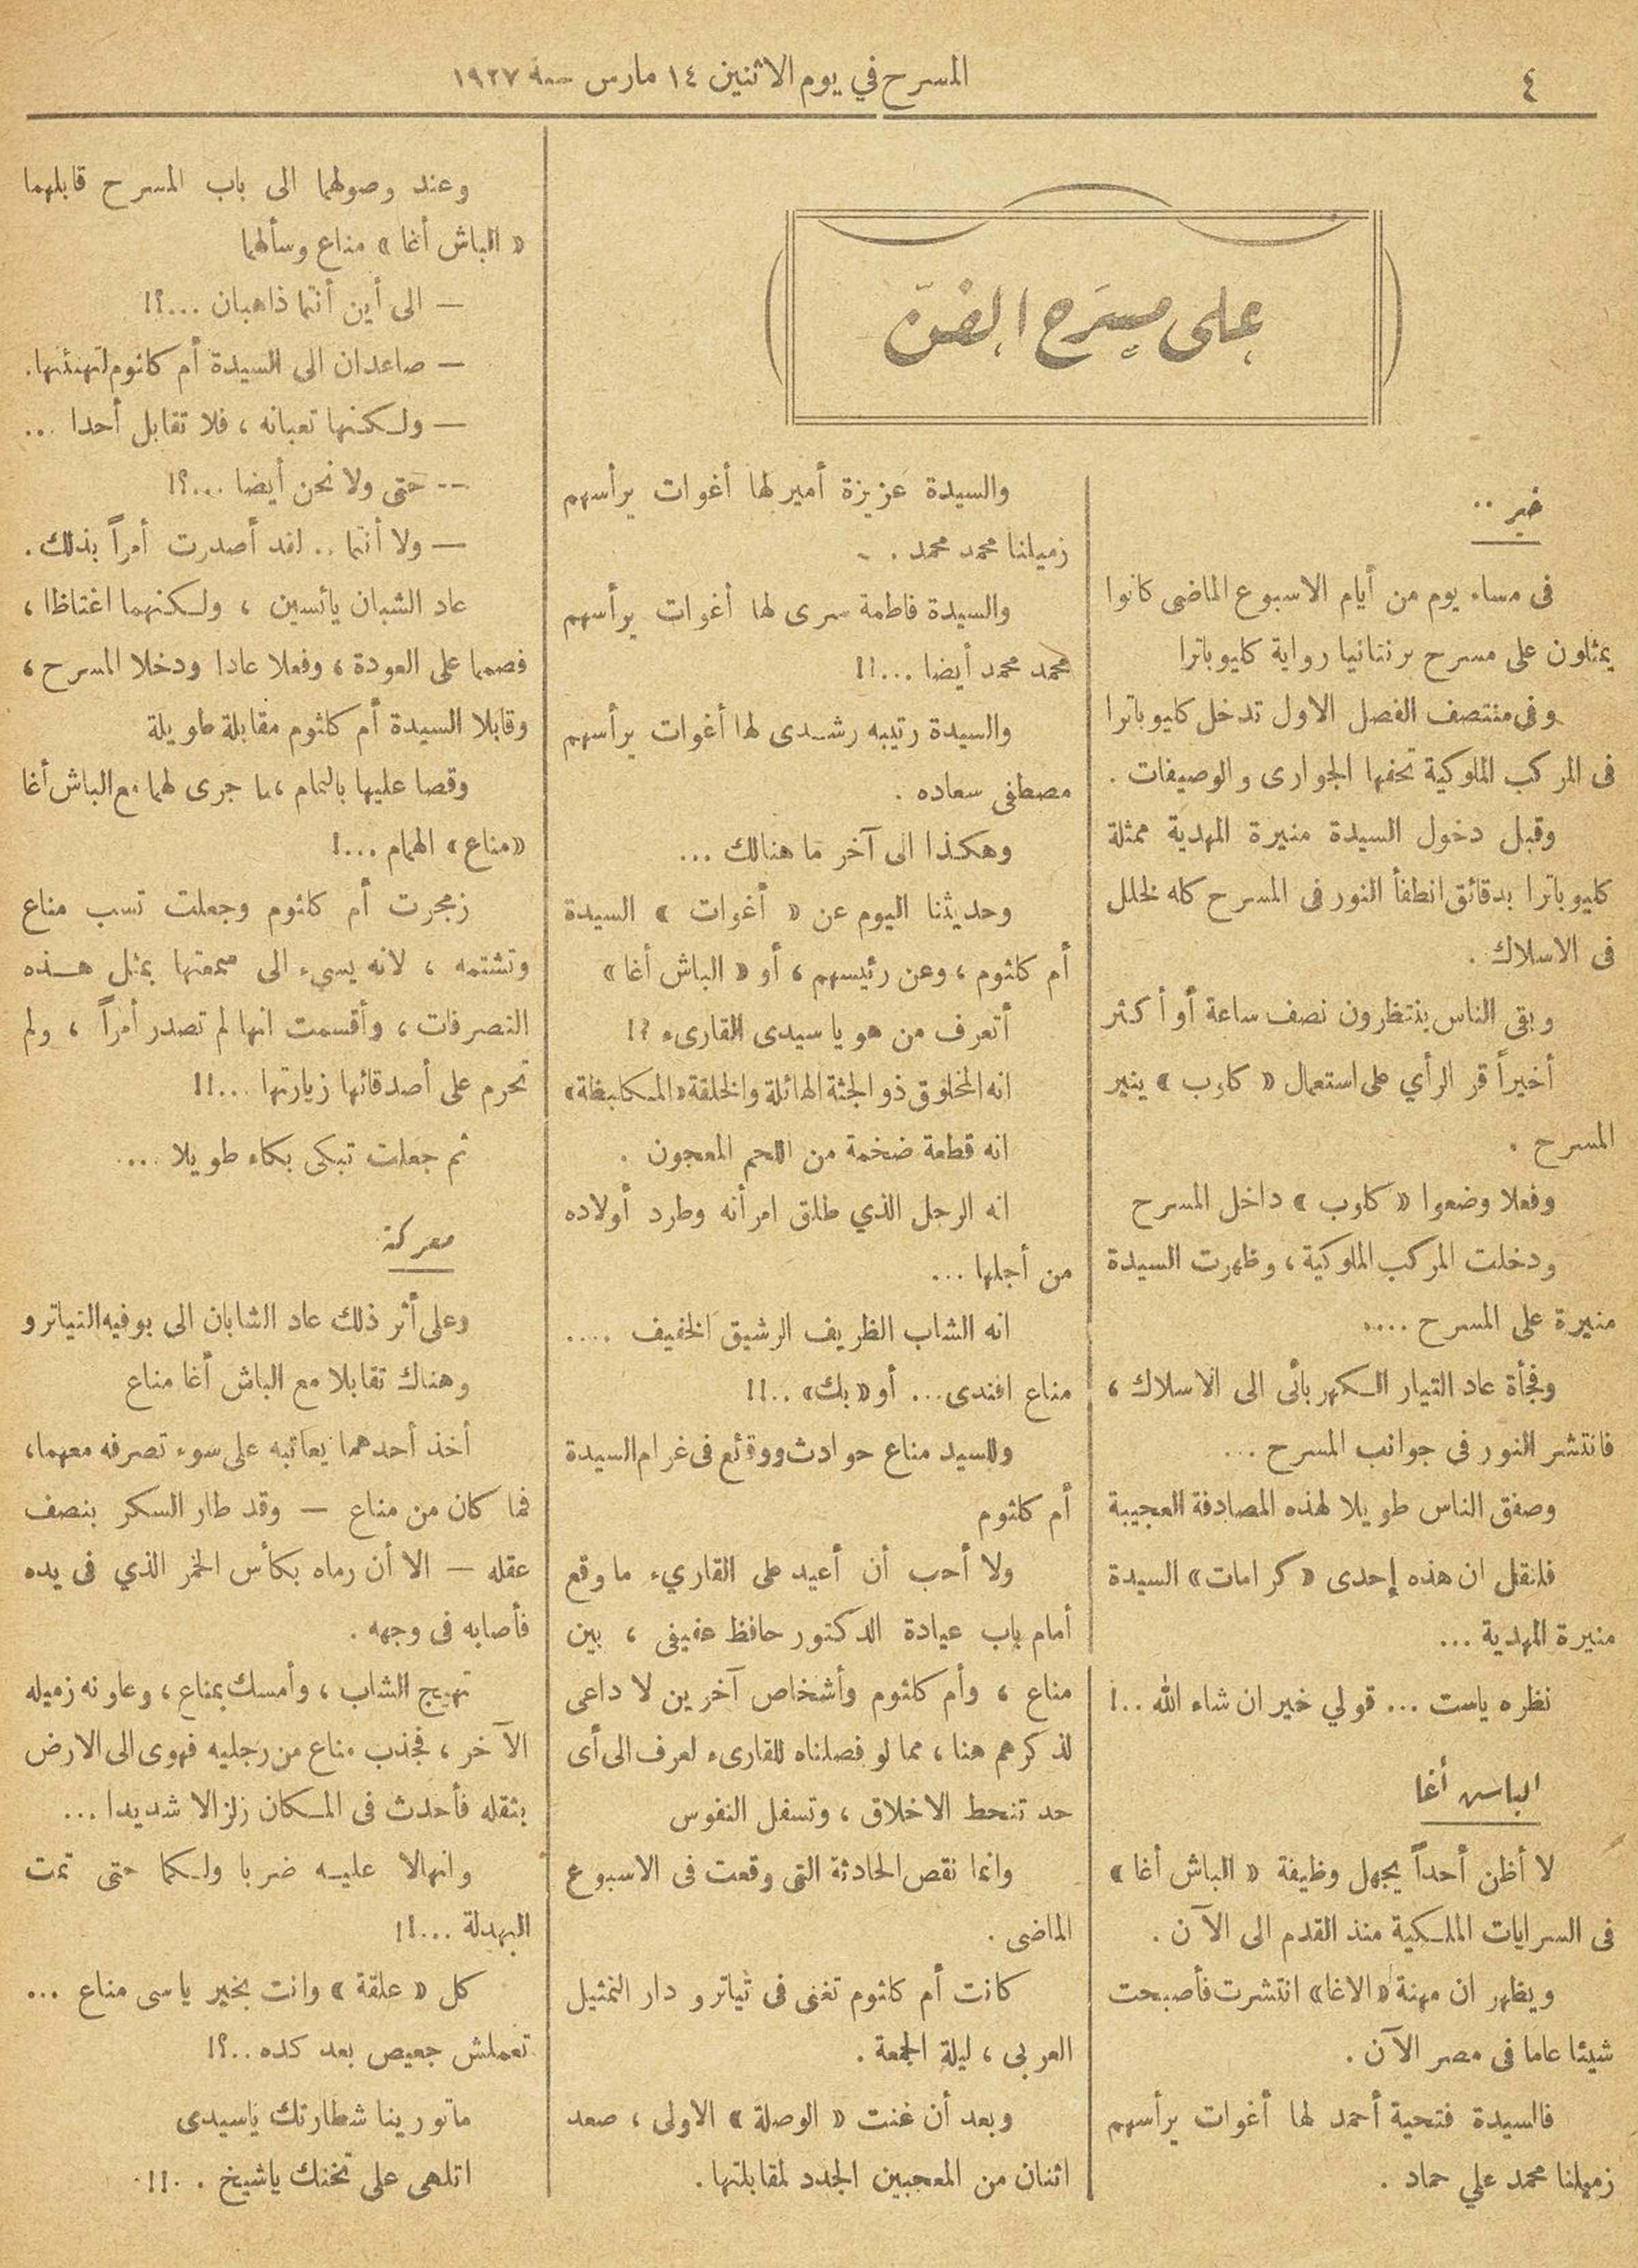 ٤
المسرح في يوم الاثنين ١٤ مارس سنة ١٩٢٧
على مسرح الفن
خير ..
فى مساء يوم من أيام الاسبوع الماضى كانوا
يمثلون على مسرح برنتانيا رواية كليوباترا
وفى منتصف الفصل الاول تدخل كليوباترا
فى المركب الملوكية تحفها الجوارى والوصيفات .
وقبل دخول السيدة منيرة المهدية ممثلة
كليوباترا بدقائق انطفأ النور فى المسرح كله لخلل
فى الاسلاك .
وبقى الناس ينتظرون نصف ساعة أو أكثر
أخيراً قر الرأي على استعمال « كلوب » ينير
المسرح .
وفعلا وضعوا « كلوب » داخل المسرح
ودخلت المركب الملوكية ، وظهرت السيدة
منيرة على المسرح ....
وفجأة عاد التيار الكهربائى الى الاسلاك ،
فانتشر النور فى جوانب المسرح ...
وصفق الناس طويلا لهذه المصادفة العجيبة
فلنقل ان هذه إحدى « كرامات » السيدة
منيرة المهدية ...
نظره ياست ... قولي خير ان شاء الله ..!
الباش أغا
لا أظن أحداً يجهل وظيفة « الباش أغا »
فى السرايات الملكية منذ القدم الى الآن .
ويظهر ان مهنة « الاغا » انتشرت فأصبحت
شيئا عاما فى مصر الآن .
فالسيدة فتحية أحمد لها أغوات يرأسهم
زميلنا محمد علي حماد .
والسيدة عزيزة أمير لها أغوات يرأسهم
زميلنا محمد محمد . .
والسيدة فاطمة سرى لها أغوات يرأسهم
محمد محمد أيضا ...!!
والسيدة رتيبه رشدى لها أغوات يرأسهم
مصطفى سعاده .
وهكذا الى آخر ما هنالك ...
وحديثنا اليوم عن « أغوات » السيدة
أم كلثوم ، وعن رئيسهم ، أو « الباش أغا »
أتعرف من هو يا سيدى القارىء ?!
انه المخلوق ذو الجثة الهائلة والخلقة « المكلبظة »
انه قطعة ضخمة من اللحم المعجون .
انه الرجل الذي طلق امرأته وطرد أولاده
من أجلها ...
انه الشاب الظريف الرشيق الخفيف ....
مناع افندى ... أو « بك » ..!!
وللسيد مناع حوادث ووقائع فى غرام السيدة
أم كلثوم
ولا أحب أن أعيد على القاريء ما وقع
أمام باب عيادة الدكتور حافظ عفيفى ، بين
مناع ، وأم كلثوم وأشخاص آخرين لا داعى
لذكرهم هنا ، مما لو فصلناه للقارىء لعرف الى أى
حد تنحط الاخلاق ، وتسفل النفوس
وانما نقص الحادثة التى وقعت فى الاسبوع
الماضى .
كانت أم كلثوم تغنى فى تياترو دار التمثيل
العربى ، ليلة الجمعة .
وبعد أن غنت « الوصلة » الاولى ، صعد
اثنان من المعجبين الجدد لمقابلتها .
وعند وصولهما الى باب المسرح قابلهما
« الباش أغا » مناع وسألهما
— الى أين أنتما ذاهبان ...؟!
— صاعدان الى السيدة أم كلثوم لتهنئتها .
— ولكنها تعبانه ، فلا تقابل أحدا ...
-- حتى ولا نحن أيضا ...؟!
— ولا أنتما .. لقد أصدرت أمراً بذلك .
عاد الشبان يائسين ، ولكنهما اغتاظا ،
فصمما على العودة ، وفعلا عادا ودخلا المسرح ،
وقابلا السيدة أم كلثوم مقابلة طويلة
وقصا عليها بالتمام ، ما جرى لهما مع الباش أغا
« مناع » الهمام ...!
زمجرت أم كلثوم وجعلت تسب مناع
وتشتمه ، لانه يسيء الى سمعتها بمثل هذه
التصرفات ، وأقسمت انها لم تصدر أمراً ، ولم
تحرم على أصدقائها زيارتها ...!!
ثم جعلت تبكى بكاء طويلا ...
معركة
وعلى أثر ذلك عاد الشابان الى بوفيه التياترو
وهناك تقابلا مع الباش أغا مناع
أخذ أحدهما يعاتبه على سوء تصرفه معهما ،
فما كان من مناع — وقد طار السكر بنصف
عقله — الا أن رماه بكأس الخمر الذي فى يده
فأصابه فى وجهه .
تهيج الشاب ، وأمسك بمناع ، وعاونه زميله
الآخر ، فجذب مناع من رجليه فهوى الى الارض
بثقله فأحدث فى المكان زلزالا شديدا ...
وانهالا عليه ضربا ولكما حتى تمت
البهدلة ...!!
كل « علقة » وانت بخير ياسى مناع ...
تعملش جعيص بعد كده ..؟!
ماتورينا شطارتك ياسيدى
اتلهى على تخنك ياشيخ . .!!